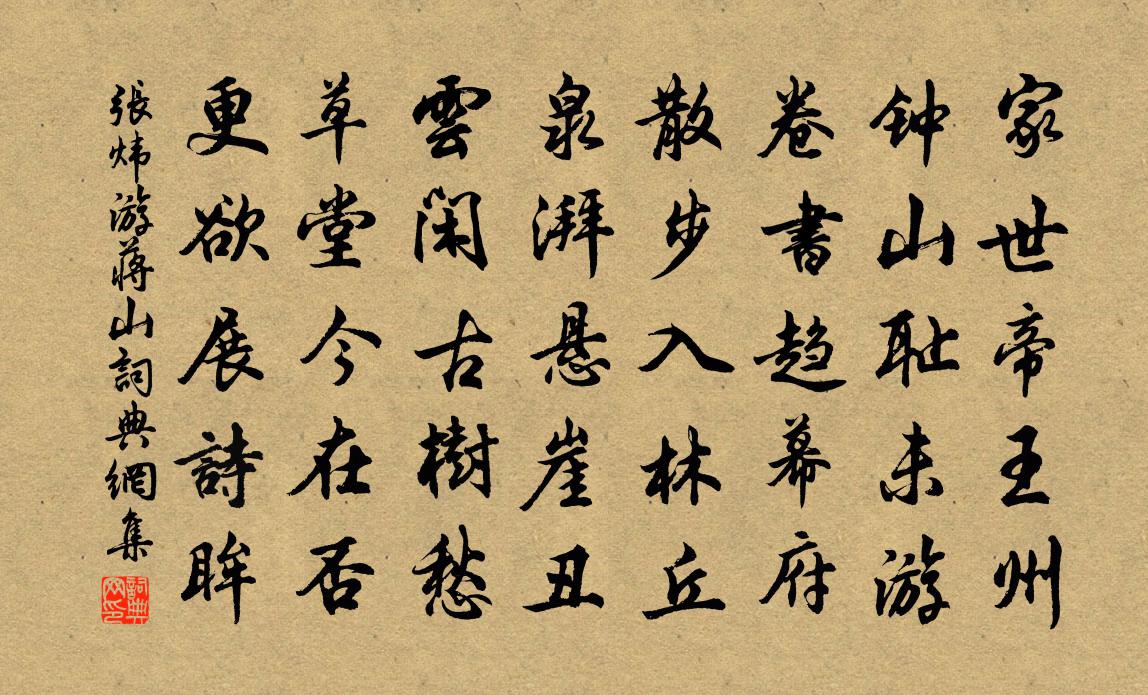 家世帝王州
钟山耻未游
卷書趋幕府
散步入林丘
泉湃悬崖丑
雲闲古樹愁
草堂今在否
更欲展詩眸
張炜游蒋山詞典網集
詞典网印